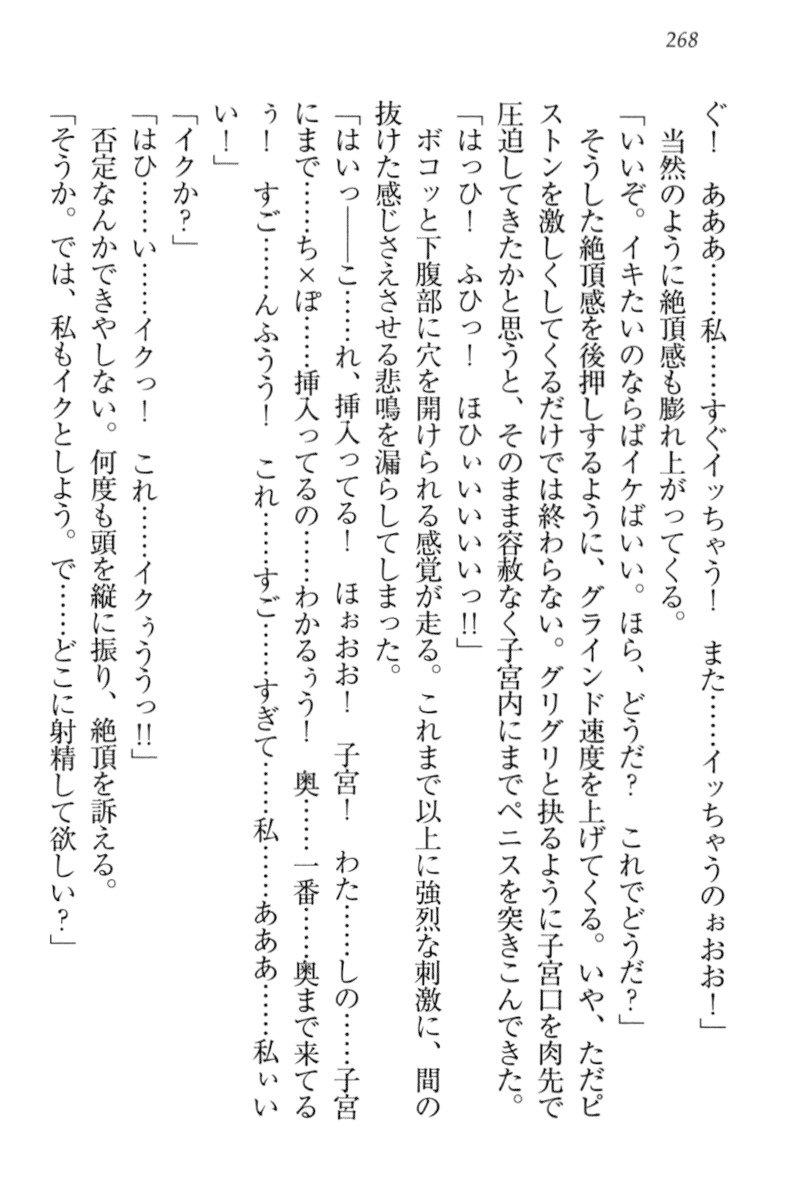 268
ぐ！　あああ……私……すぐイッちゃう！　また……イッちゃうのぉおお！」
　当然のように絶頂感も膨れ上がってくる。
「いいぞ。イキたいのならばイケばいい。ほら、どうだ？　これでどうだ？」
　そうした絶頂感を後押しするように、グラインド速度を上げてくる。いや、ただピ
ストンを激しくしてくるだけでは終わらない。グリグリと抉るように子宮口を肉先で
圧迫してきたかと思うと、そのまま容赦なく子宮内にまでペニスを突きこんできた。
「はっひ！　ふひっ！　ほひぃいいいいっ!!」
　ボコッと下腹部に穴を開けられる感覚が走る。これまで以上に強烈な刺激に、間の
抜けた感じさえさせる悲鳴を漏らしてしまった。
「はいっ――こ……れ、挿入ってる！　ほぉおお！　子宮！　わた……しの……子宮
にまで……ち×ぽ……挿入ってるの……わかるぅう！　奥……一番……奥まで来てる
ぅ！　すご……んふうう！　これ……すご……すぎて……私……あああ……私ぃい
い！」
「イクか？」
「はひ……い……イクっ！　これ……イクぅううっ!!」
　否定なんかできやしない。何度も頭を縦に振り、絶頂を訴える。
「そうか。では、私もイクとしよう。で……どこに射精して欲しい？」